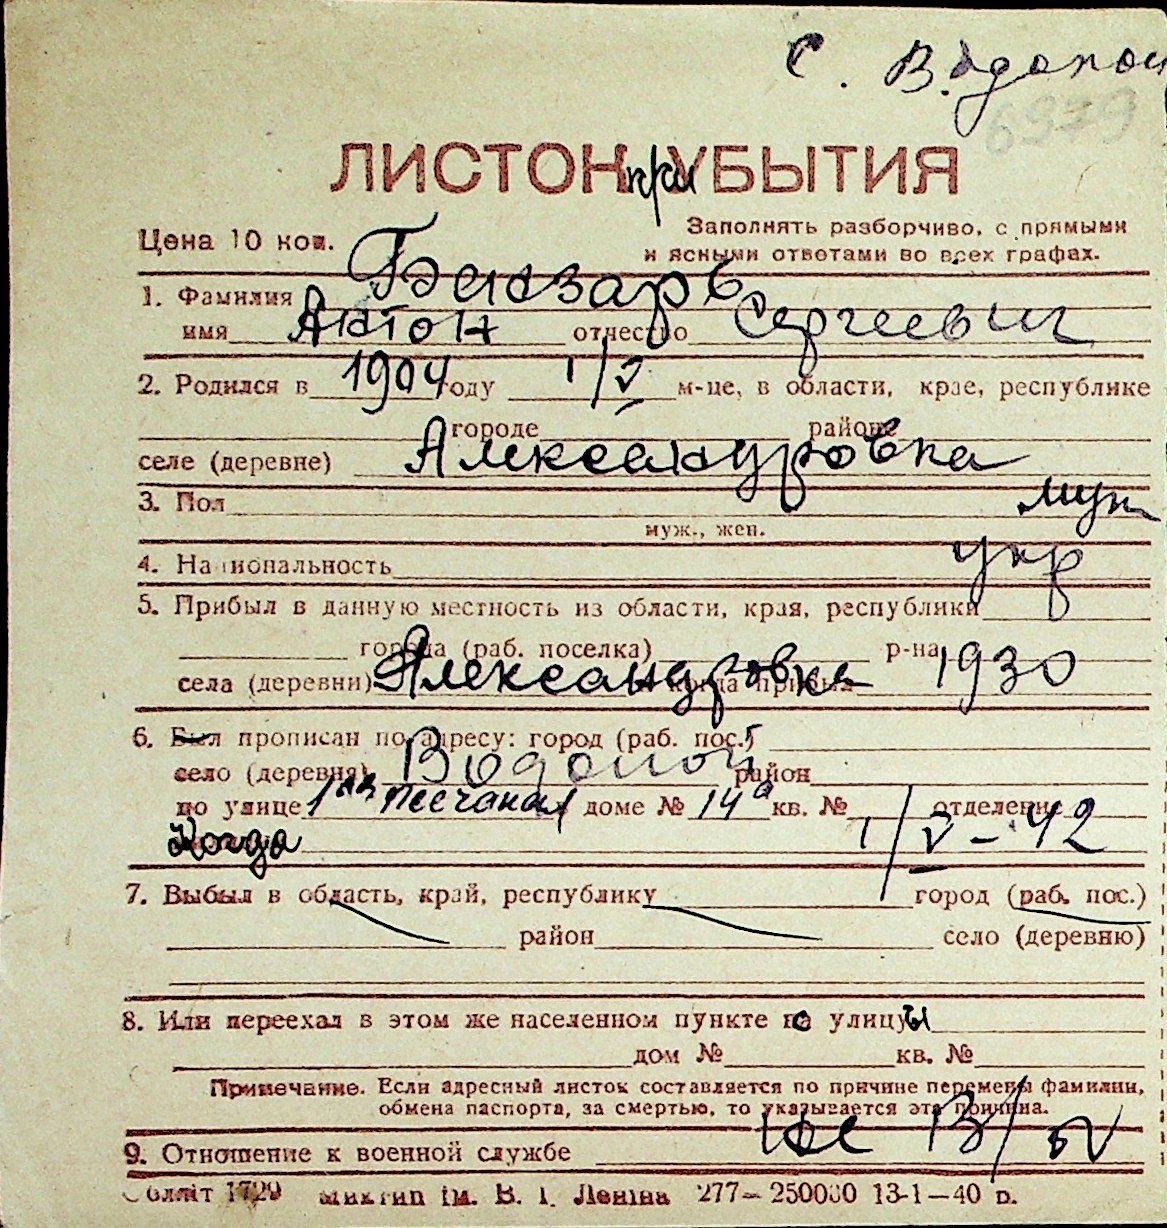 с. Водопой
6979
ЛИСТОК при УБЫТИЯ
Цена 10 коп.
Заполнять разборчиво, с прямыми
и ясными ответами во всех графах.
1. Фамилия
имя Антон отчество Сергеевич
2. Родился в 1904 году 1/V м-це, в области, крае, республике
городе районе
селе (деревне) Александровка
3. Пол муж
муж., жен.
4. Национальность укр
5. Прибыл в данную местность из области, края, республики
города (раб. поселка) р-на
села (деревни) Александровка и когда прибыл 1930
6. Был прописан по адресу: город (раб. пос.)
село (деревня) Водопой район
по улице 1ая Песчаная доме № 14а кв. № отделение
Когда 1/V-42
7. Выбыл в область, край, республику город (раб. пос.)
район село (деревню)
8. Или переехал в этом же населенном пункте с улицы
дом № кв. №
Примечание. Если адресный листок составляется по причине перемены фамилии,
обмена паспорта, за смертью, то указывается эта причина.
9. Отношение к военной службе не в/об
Облліт 1729 Миктип ім. В. І. Леніна 277—250000 13-1—40 р.